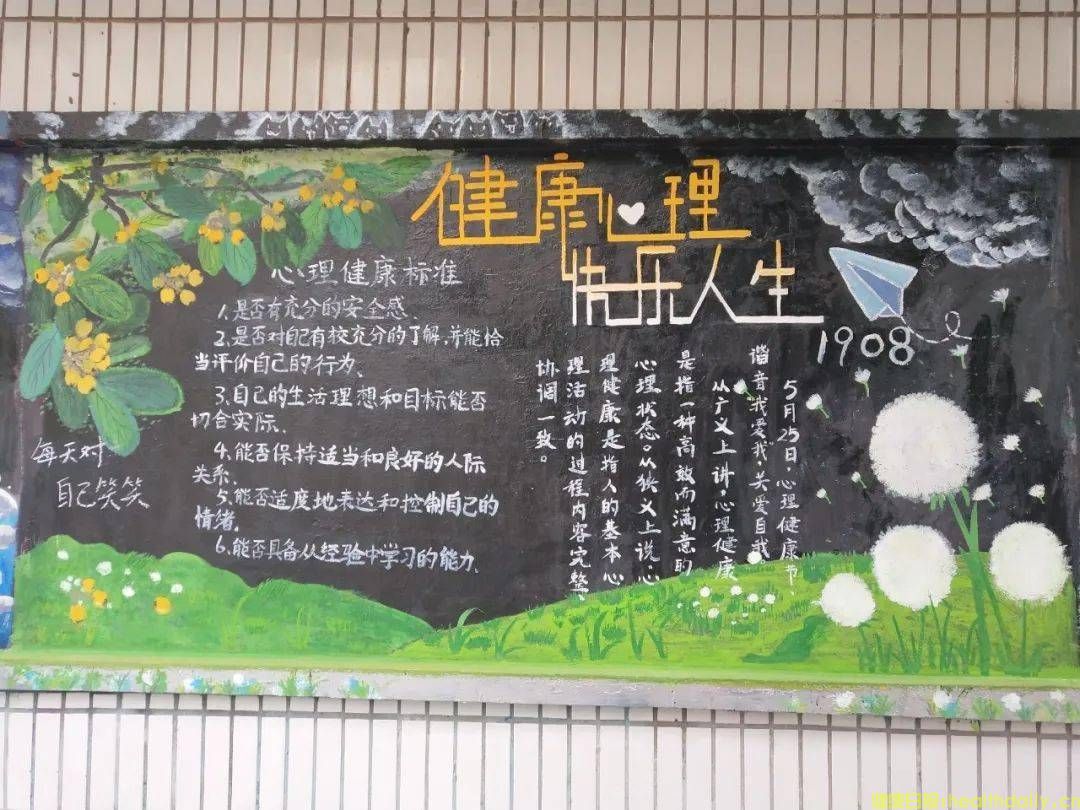 健康心理
快乐人生
1908
心理健康标准
1.是否有充分的安全感、
2.是否对自己有较充分的了解,并能恰
当评价自己的行为、
3.自己的生活理想和目标能否
切合实际、
4.能否保持适当和良好的人际
关系、
5.能否适度地表达和控制自己的
情绪、
6.能否具备从经验中学习的能力、
每天对
自己笑笑
5月25日,心理健康节、
谐音我爱我,关爱自我、
从广义上讲,心理健康
是指一种高效而满意的
心理状态。从狭义上说,心
理健康是指人的基本心
理活动的过程内容完整、
协调一致。